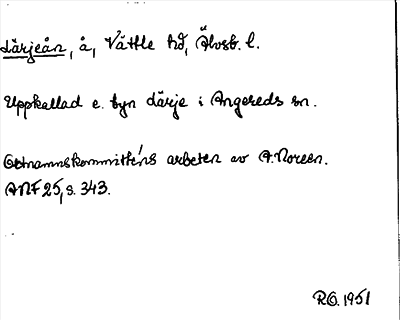 Lärjeån, å, Vättle hd, Älvsb. l.
Uppkallad e. byn Lärje i Angereds sn.
Ortnamnskommitténs arbeten av A. Noreen.
ANF 25, s. 343.
R.O. 1951